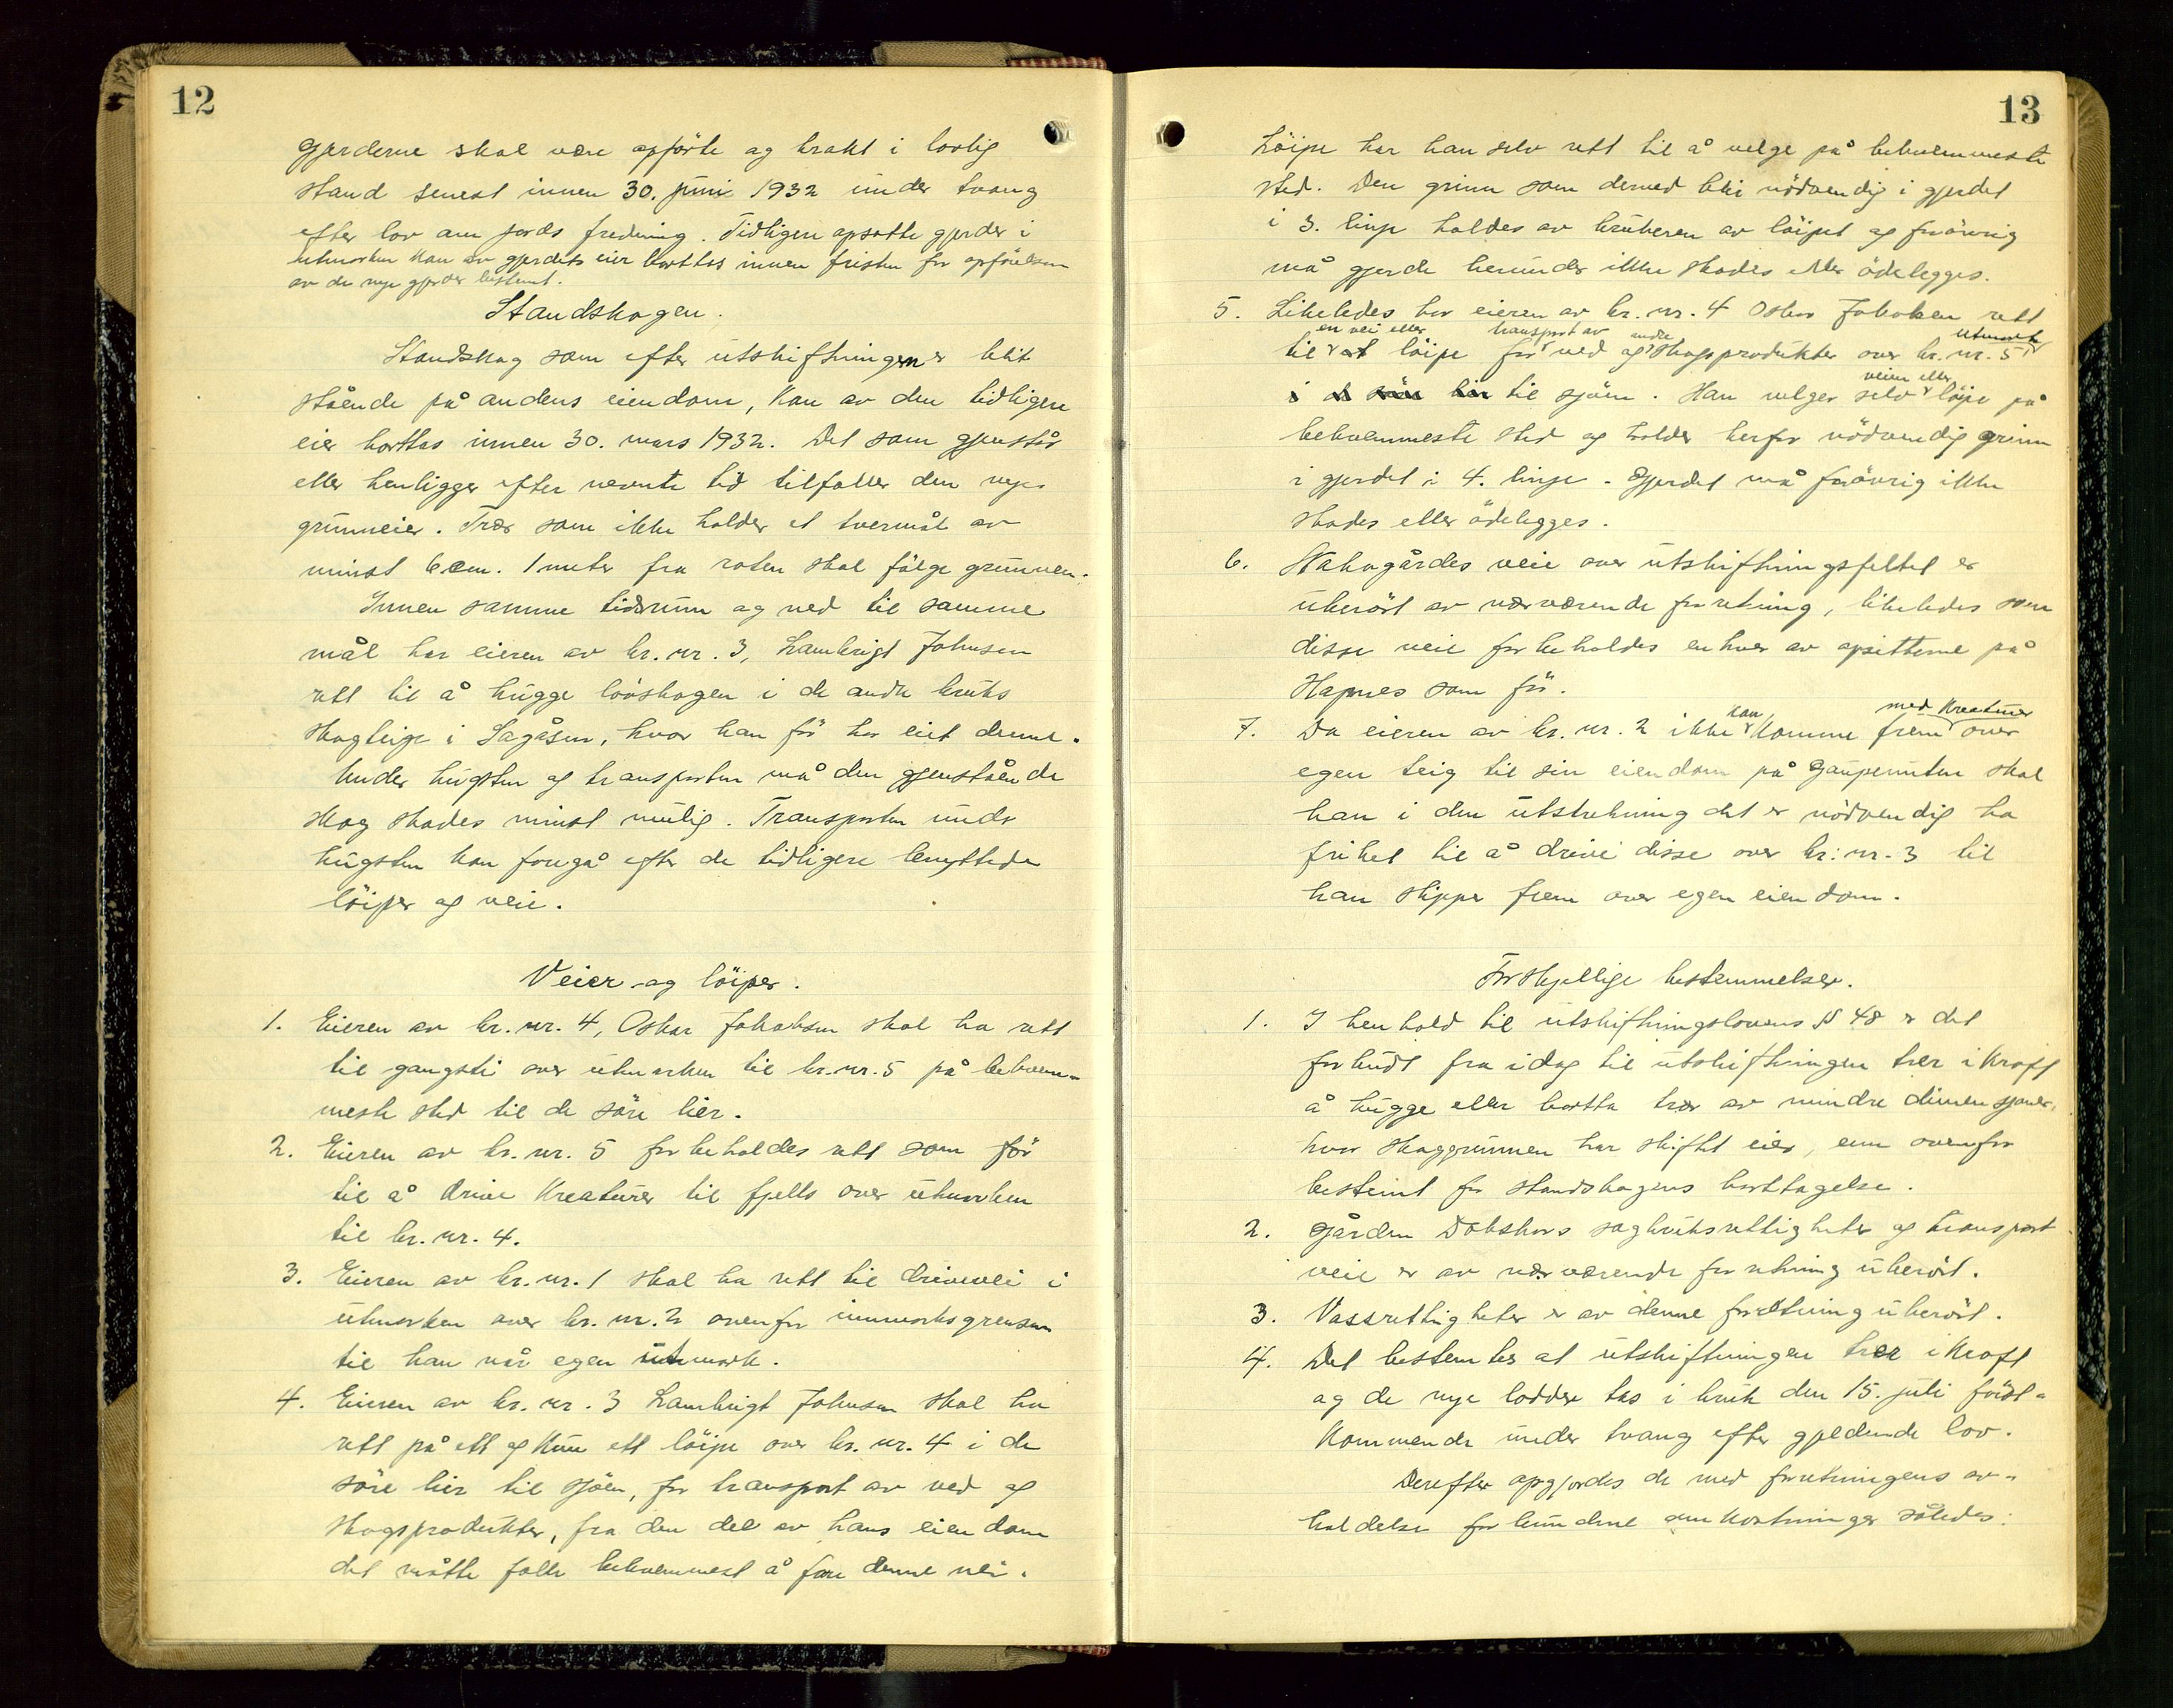 12
gjerderne skal være opförte og brakt i lovlig
stand senest innen 30. juni 1932 under tvang
efter lov om jords fredning. Tidligere opsatte gjerder i
utmarken kan av gjerdets eier borttas innen fristen for opförelsen
av de nye gjerder bestemt.
Standskogen.
Standskog som efter utskiftningen er blit
stående på andens eiendom, kan av den tidligere
eier borttas innen 30. mars 1932. Det som gjenstår
eller henligger efter nevnte tid tilfaller den nye
grunneier. Trær som ikke holder et tvermål av
minst 6 cm. 1 meter fra roten skal fölge grunnen.
Innen samme tidsrum og ned til samme
mål har eieren av br. nr. 3, Lambrigt Johnsen
rett til å hugge lövskogen i de andre bruks
skogteige i Sagåsen, hvor han för har eiet denne.
Under hugsten og transporten må den gjenstående
skog skades minst mulig. Transporten under
hugsten kan foregå efter de tidligere benyttede
löiper og veie.
Veier og löiper.
1. Eieren av br. nr. 4, Oskar Jakobsen skal ha rett
til gangsti over utmarken til br. nr. 5 på bekvem-
meste sted til de söre lier.
2. Eieren av br. nr. 5 forbeholdes rett som för
til å drive kreaturer til fjells over utmarken
til br. nr. 4.
3. Eieren av br. nr. 1 skal ha rett til drivevei i
utmarken over br. nr. 2 ovenfor innmarksgrensen
til han når egen utmark.
4. Eieren av br. nr. 3 Lambrigt Johnsen skal ha
rett på ett og kun ett löipe over br. nr. 4 i de
söre lier til sjöen, for transport av ved og
skogsprodukter, fra den del av hans eiendom
det måtte falle bekvemmest å före denne vei.
13
Löipe har han selv rett til å velge på bekvemmeste
sted. Den grinn som derved blir nödvendig i gjerdet
i 3. linje holdes av brukeren av löipet og forövrig
må gjerde herunder ikke skades eller ödelegges.
5. Likeledes har eieren av br. nr. 4 Oskar Jakobsen rett
en vei eller transport av andre utmark
til et löipe for ved og skogsprodukter over br. nr. 5,
til sjöen. Han velger selv löipe på
veien eller
bekvemmeste sted og holder herfor nödvendig grinn
i gjerdet i 4. linje. Gjerdet må forövrig ikke
skades eller ödelegges.
6. Nabogårdes veie over utskiftningsfeltet er
uberört av nærværende forretning, likeledes som
disse veie forbeholdes enhver av opsitterne på
Hapnes som för.
kan med kreaturer
7. Da eieren av br. nr. 2 ikke komme frem over
egen teig til sin eiendom på Gaupenuten skal
han i den utstrekning det er nödvendig ha
frihet til å drive disse over br. nr. 3 til
han slipper frem over egen eiendom.
Forskjellige bestemmelser.
1. I henhold til utskiftningslovens § 48 er det
forbudt fra idag til utskiftningen trer i kraft
å hugge eller bortta trær av mindre dimensjoner,
hvor skoggrunnen har skiftet eier, enn ovenfor
bestemt for standskogens borttagelse.
2. Gården sagbruksrettigheter og transport
veie er av nærværende forretning uberört.
3. Vassrettigheter er av denne forretning uberört.
4. Det bestemtes at utskiftningen trer i kraft
og de nye lodder tas i bruk den 15. juli först-
kommende under tvang efter gjeldende lov.
Derefter opgjordes de med forretningens av-
holdelse forbundne omkostninger således: